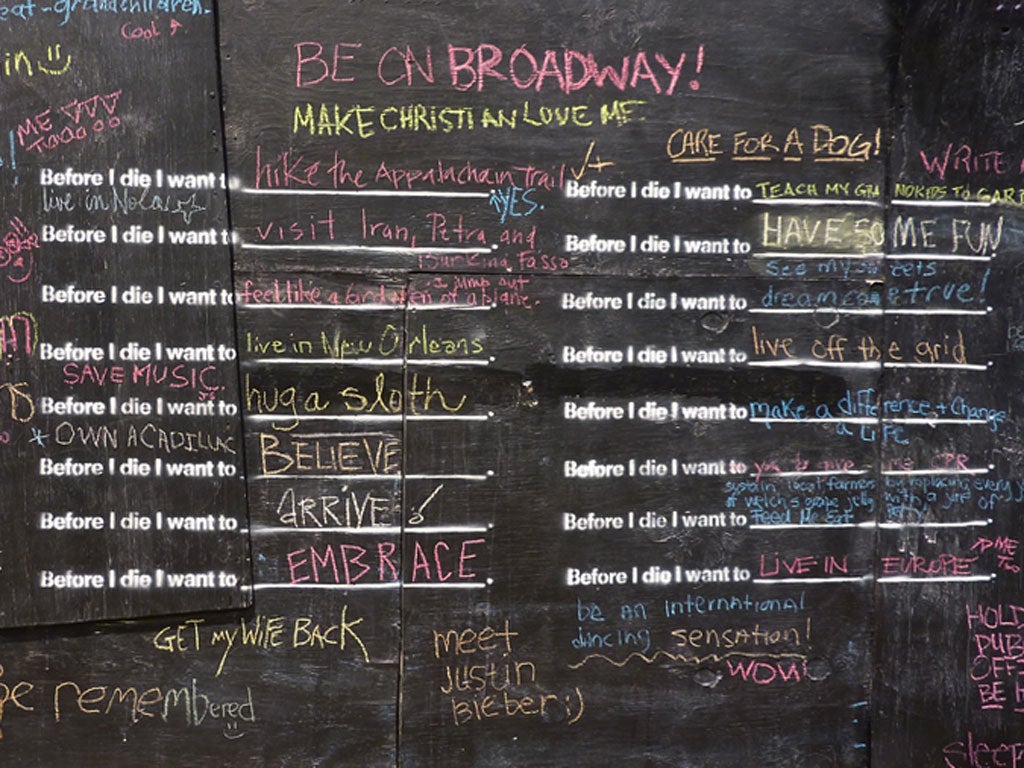 eat-grandchildren.
Cool
in
ME
TOOOOO
BE ON BROADWAY!
MAKE CHRISTIAN LOVE ME
CARE FOR A DOG!
WRITE
Before I die I want to hike the Appalachain Trail
YES.
live in Nola
Before I die I want to visit Iran, Petra and
Burkina Fasso
Before I die I want to feel like a bird when I jump out of a plane.
Before I die I want to live in New Orleans
SAVE MUSIC.
Before I die I want to hug a sloth
* OWN A CADILLAC
Before I die I want to BELIEVE
Before I die I want to ARRIVE
Before I die I want to EMBRACE
GET MY WIFE BACK
be remembered
meet
justin
bieber :)
Before I die I want to TEACH MY GRANDKIDS TO GAR
Before I die I want to HAVE SOME FUN
see my
Before I die I want to dream come true!
Before I die I want to live off the grid
Before I die I want to make a difference + Change
a LiFE
Before I die I want to you to give me CPR
sustain local farmers by replacing every
of welch's grape jelly with a jar of
Before I die I want to Feed Me Sat
Before I die I want to LIVE IN EUROPE
ME TOO
be an international
dancing sensation!
WOW!
HOLD
PUB
OFF
BE
sleep